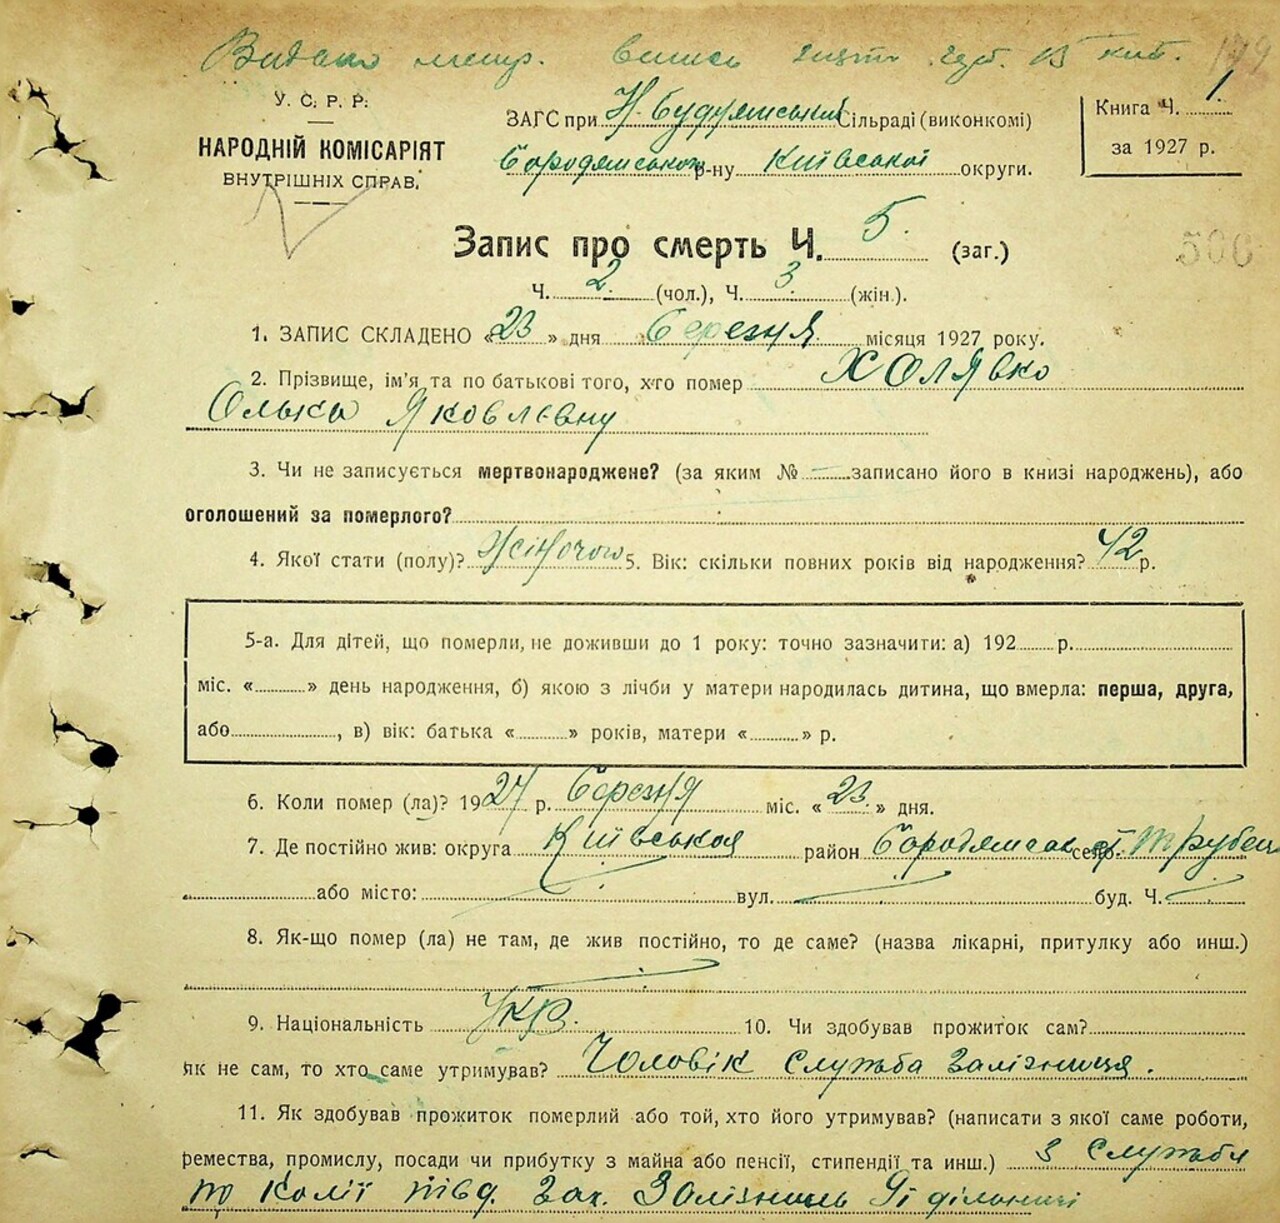 Видано метр. випись
179
У. С. Р. Р.
НАРОДНІЙ КОМІСАРІЯТ
ВНУТРІШНІХ СПРАВ.
ЗАГС при Н. Будуямський Сільраді (виконкомі)
Бородямського р-ну Київської округи.
Книга Ч. 1
за 1927 р.
Запис про смерть Ч. 5. (заг.)
506
Ч. 2. (чол.), Ч. 3 (жін.).
1. ЗАПИС СКЛАДЕНО «23» дня березня місяця 1927 року.
2. Прізвище, ім'я та по батькові того, хто помер Холявко
Ольки Яковлєвну
3. Чи не записується мертвонароджене? (за яким № записано його в книзі народжень), або
оголошений за померлого?
4. Якої стати (полу)? Жіночого 5. Вік: скільки повних років від народження? 42 р.
5-а. Для дітей, що померли, не доживши до 1 року: точно зазначити: а) 192 р.
міс. « » день народження, б) якою з лічби у матери народилась дитина, що вмерла: перша, друга,
або , в) вік: батька « » років, матери « » р.
6. Коли помер (ла)? 1927 р. березня міс. «23.» дня.
7. Де постійно жив: округа Київська район Бородямськ село
або місто: вул. буд. Ч.
8. Як-що помер (ла) не там, де жив постійно, то де саме? (назва лікарні, притулку або инш.)
9. Національність Укр. 10. Чи здобував прожиток сам?
Як не сам, то хто саме утримував? Чоловік служба залізниця.
11. Як здобував прожиток померлий або той, хто його утримував? (написати з якої саме роботи,
ремества, промислу, посади чи прибутку з майна або пенсії, стипендії та инш.) З служби
по колії півд. зах. Залізниць дільниці